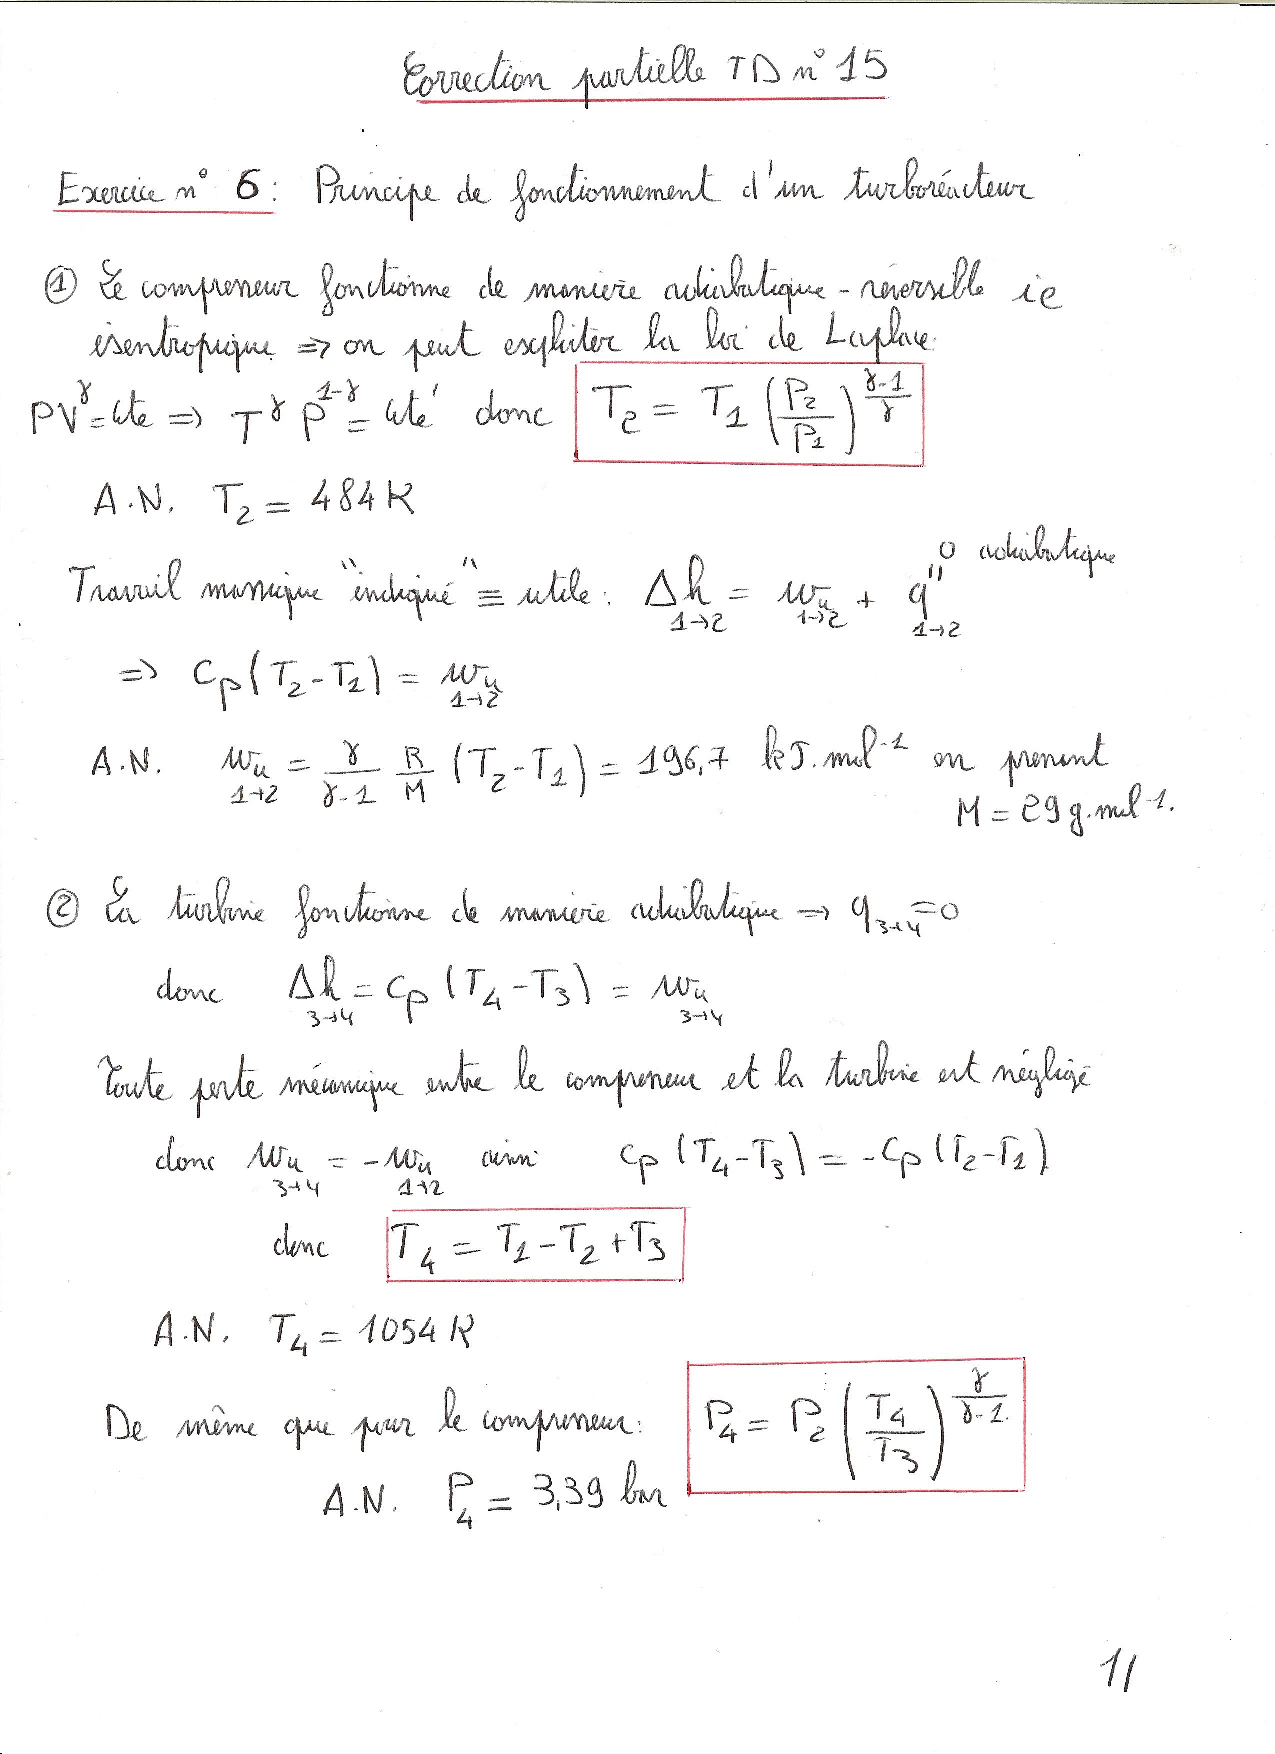 Correction partielle TD n° 15
Exercice n° 6 : Principe de fonctionnement d'un turboréacteur
① Le compresseur fonctionne de manière adiabatique - réversible ie
isentropique => on peut exploiter la loi de Laplace.
PV^γ = cte => T^γ P^(1-γ) = cte' donc T₂ = T₁ (P₂/P₁)^((γ-1)/γ)
A.N. T₂ = 484 K
Travail massique "indiqué" ≡ utile : Δh 1→2 = wu 1→2 + q 1→2 = 0 adiabatique
=> cp (T₂ - T₁) = wu 1→2
A.N. wu 1→2 = γ/(γ-1) R/M (T₂ - T₁) = 196,7 kJ.mol⁻¹ en prenant
M = 29 g.mol⁻¹.
② La turbine fonctionne de manière adiabatique => q 3→4 = 0
donc Δh 3→4 = cp (T₄ - T₃) = wu 3→4
Toute perte mécanique entre le compresseur et la turbine est négligé
donc wu 3→4 = - wu 1→2 ainsi cp (T₄ - T₃) = - cp (T₂ - T₁)
donc T₄ = T₁ - T₂ + T₃
A.N. T₄ = 1054 K
De même que pour le compresseur : P₄ = P₂ (T₄/T₃)^(γ/(γ-1))
A.N. P₄ = 3,39 bar
1/